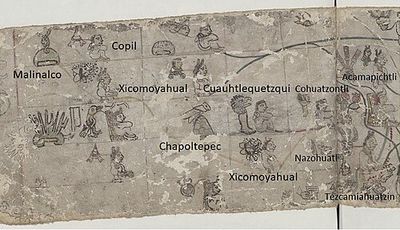 Copil
Malinalco
Xicomoyahual
Cuauhtlequetzqui
Cohuatzontli
Acamapichtli
Chapoltepec
Nazohuatl
Xicomoyahual
Tezcamiahuatzin